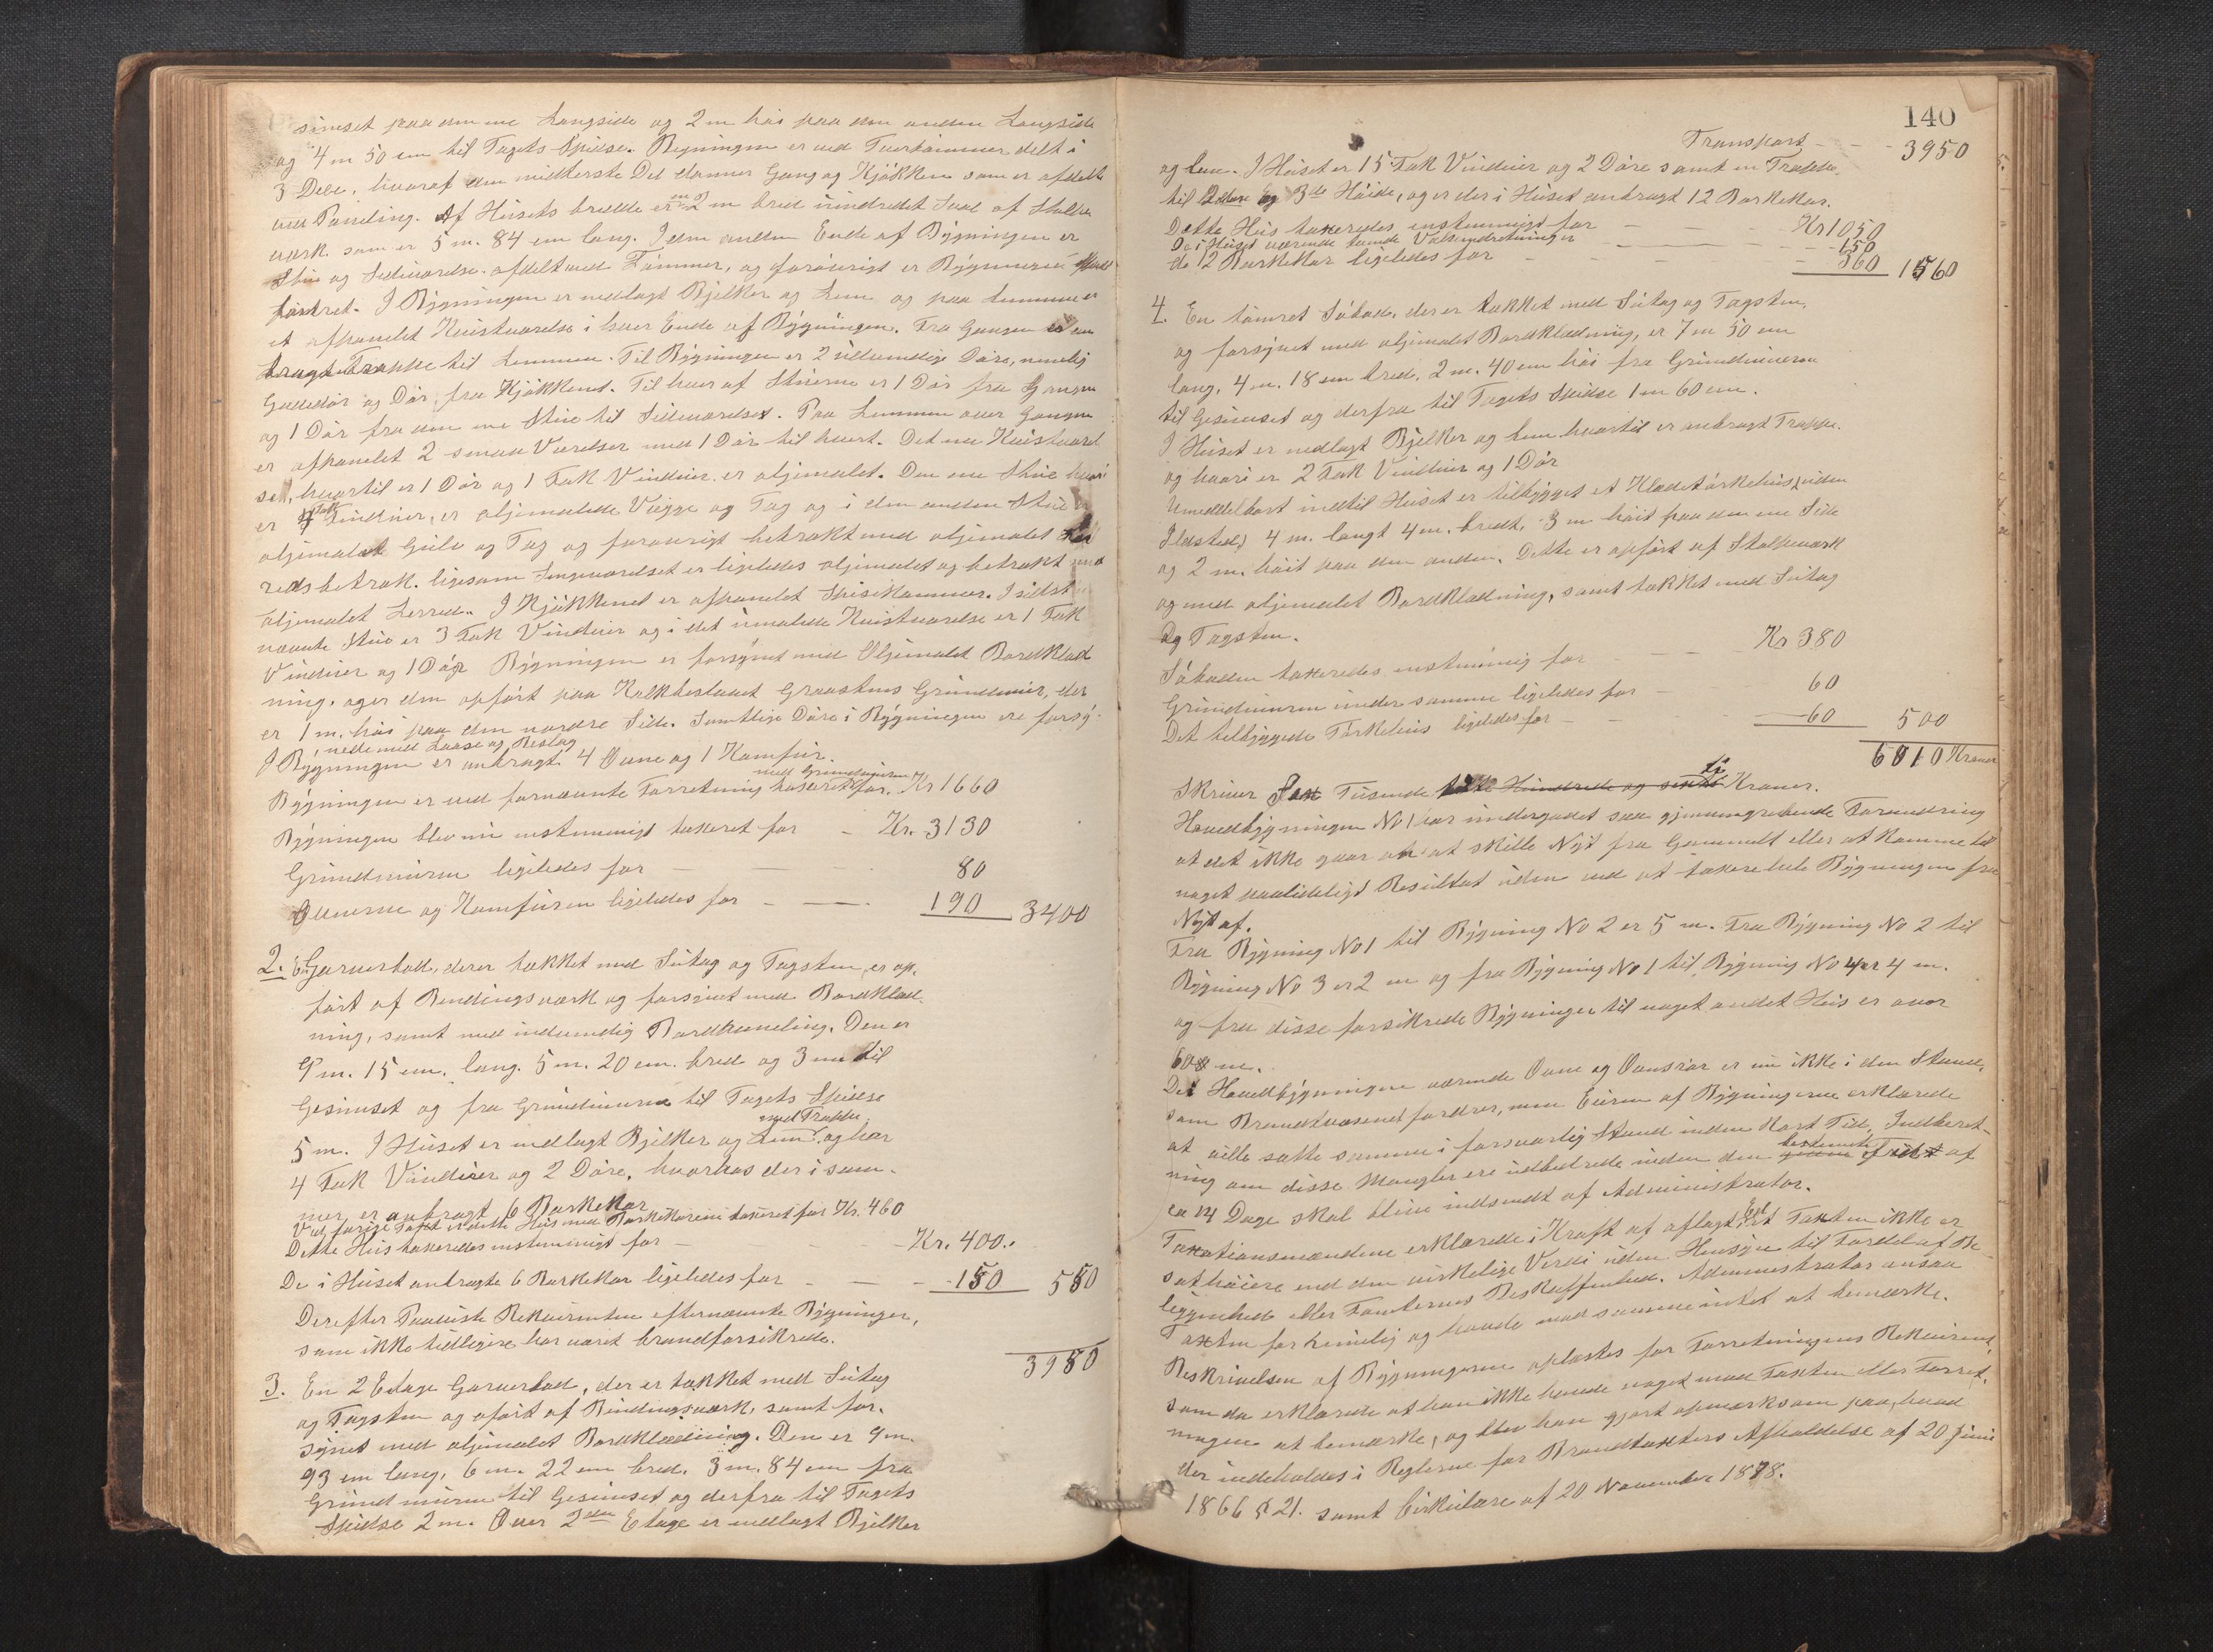 simset paa den ene Langside og 2 m høi paa den anden Langside
og 4 m 50 cm til Tagets Spidse. Bygningen er ved Tvertømmer delt i
3 Dele, hvoraf den midterste Del danner Gang og Kjøkken som er afdelte
ved Paneling. Af Husets bredde er en 2 m bred uindredet Sval af Stolpe
værk som er 5 m. 84 cm lang. I den anden Ende af Bygningen er
Stue og Sideværelse afdelt med Tømmer, og forøvrigt er Bygningen
tømret. I Bygningen er nedlagt Bjelker og Lem og paa Lemmen er
et afpanelet Kvistværelse i hver Ende af Bygningen. Fra Gangen er an
bragt Trappe til Lemmen. Til Bygningen er 2 udvendige Døre, nemlig
Gadedør og Dør fra Kjøkkenet. Til hver af Stuerne er 1 Dør fra Gangen
og 1 Dør fra den ene Stue til Sideværelset. Paa Lemmen over Gangen
er afpanelet 2 smaa Værelser med 1 Dør til hvert. Det ene Kvistværel
set, hvortil er 1 Dør og 1 Fak Vinduer er oljemalet. Den ene Stue hvori
er 4 Fak Vinduer, er oljemalede Vægge og Tag og i den anden Stue er
oljemalet Gulv og Tag og forøvrigt betrukket med oljemalet Ler
redsbetræk. ligesom Sengeværelset er ligeledes oljemalet og betrukt med
oljemalet Lerred. I Kjøkkenet er afpanelet Spisekammer. I sidst
nævnte Stue er 3 Fak Vinduer og i det umalede Kvistværelse er 1 Fak
Vinduer og 1 Dør Bygningen er forsynet med Oljemalet Bordklæd
ning, og er den opført paa Kalkbeslaaet Graastens Grundmur, der
er 1 m. høi paa den nordre Side. Samtlige Døre i Bygningen ere forsy-
nede med Laase og Beslag
I Bygningen er anbragt 4 Ovne og 1 Komfur.
Bygningen er ved fornævnte Forretning med Grundmuren taxeret for Kr 1660
Bygningen blev nu enstemmigt taxeret for - Kr. 3130
Grundmuren ligeledes for - 80
Ovnerne og Komfuren ligeledes for - 190 3400
2. En Garverbod, der er tækket med Sutag og Tagsten, er op-
ført af Bindingsværk og forsynet med Bordklæd-
ning, samt med indvendig Bordpaneling. Den er
9 m. 15 cm. lang. 5 m. 20 cm. bred og 3 m til
Gesimset og fra Grundmuren til Tagets Spidse
5 m. I Huset er nedlagt Bjelker og Lem med Trappe, og har
4 Fak Vinduer og 2 Døre, hvorhos der i sam-
mer er anbragt 6 Barkekar
Ved forige Taxt er dette Hus med Barkekarene taxeret for Kr. 460
Dette Hus taxeredes enstemmigt for - Kr. 400.
De i Huset anbragte 6 Barkekar ligeledes for - 150 550
Derefter Paaviste Rekvirenten efternævnte Bygninger,
som ikke tidligere har været brandforsikrede.
3950
3. En 2 Etage Garverbod, der er tækket med Sutag
og Tagsten og opført af Bindingsværk, samt for-
synet med oljemalet Bordklædning. Den er 9 m.
93 cm lang, 6 m. 22 cm bred. 3 m. 84 cm fra
Grundmuren til Gesimset og derfra til Tagets
Spidse 2 m. Over 2den Etage er nedlagt Bjelker
140
Transport - 3950
og Lem. I Huset er 15 Fak Vinduer og 2 Døre samt en Trappe
til 2den og 3de Høide, og er der i Huset anbragt 12 Barkekar.
Dette Hus taxeredes enstemmigt for - Kr 1050
De i Huset værende tvende Valseindretninger - 150
do 12 Barkekar ligeledes for - 360 1560
4. En tømret Søbod, der er tækket med Sutag og Tagsten,
og forsynet med oljemalet Bordklædning, er 7 m 50 cm
lang, 4 m. 18 cm bred, 2 m. 40 cm høi fra Grundmuren
til Gesimset og derfra til Tagets Spidse 1 m 60 cm.
I Huset er nedlagt Bjelker og Lem hvortil er anbragt Trappe.
og hvori er 2 Fak Vinduer og 1 Dør
Umeddelbart indtil Huset er tilbygget et Klædetørkehus (uden
Ildsted) 4 m. langt 4 m. bredt, 3 m høit paa den ene Side
og 2 m. høit paa den anden. Dette er opført af Stolpeværk
og med oljemalet Bordklædning, samt tækket med Sutag
og Tagsten.
Søboden taxeredes enstemmig for - Kr 380
Grundmuren under samme ligeledes for - 60
Det tilbyggede Tørkehus ligeledes for - 60 500
6010 Kroner
Skriver Sex Tusende Hundrede og ti Kroner.
Hovedbygningen No 1 har undergaaet saa gjennemgribende Forandring
at det ikke gaar an at skille Nyt fra Gammelt eller at komme til
noget paalideligt Resultat uden ved at taxere hele Bygningen fra
Nyt af.
Fra Bygning No 1 til Bygning No 2 er 5 m. Fra Bygning No 2 til
Bygning No 3 er 2 m og fra Bygning No 1 til Bygning No 4 er 4 m.
og fra disse forsikrede Bygninger til noget andet Hus er over
60 m.
De i Hovedbygningen værende Ovne og Ovnsrør er nu ikke i den Stand,
som Brandvæsenet fordrer, men Eieren af Bygningerne erklærede
at ville sætte samme i forsvarlig Stand inden Kort Tid, Indberet-
ning om disse Mangler ere udbedrede inden den bestemte Frist af
ca 14 Dage skal blive indsendt af Administrator.
Taxationsmændene erklærede i Kraft af aflagt Ed at Taxten ikke er
sat høiere end den virkelige Verdi uden Hensyn til Fordel af Be-
liggenhed eller Tomternes Beskaffenhed. Administrator ansaa
Taxten for rimelig og havde mod samme intet at bemærke.
Beskrivelsen af Bygningerne oplæstes for Forretningens Rekvirent,
som da erklærede at han ikke havde noget mod Taxten eller Forret-
ningen at bemærke, og blev han gjort opmærksom paa, hvad
der indeholdes i Reglerne for Brandtaxters Afholdelse af 20 Juni
1866 § 21. samt Cirkulære af 20 November 1878.